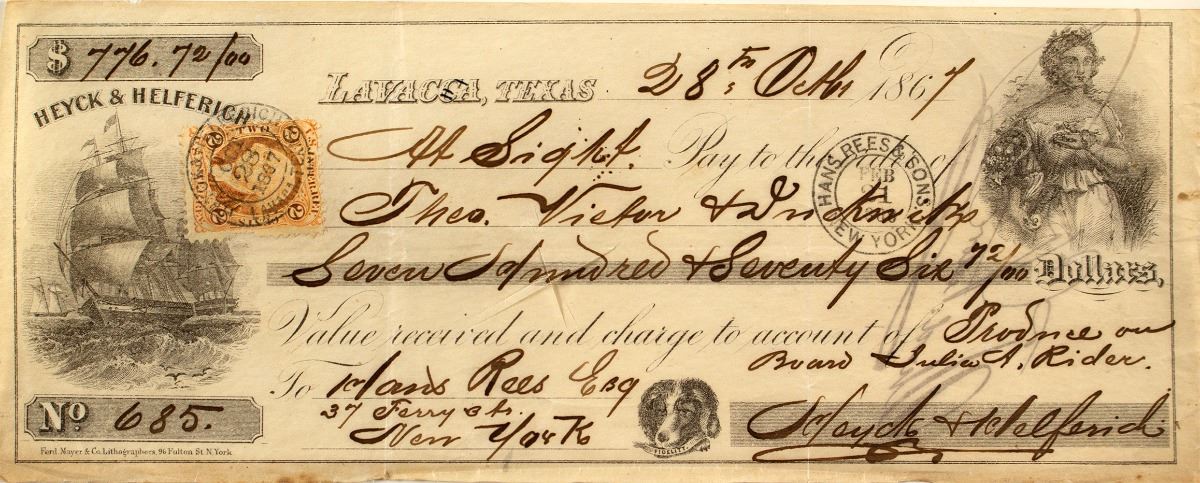 $ 776. 72/00
HEYCK & HELFERICH
LAVACCA, TEXAS 28th Octbr 1867
At Sight. Pay to the order of
Theo. Victor &
Seven Hundred & Seventy Six 72/00 Dollars,
Value received and charge to account of Produce on
Board Julia A. Rider.
To Hans Rees Esq
37 Ferry Str.
New York
No 685.
Heyck & Helferich
FIDELITY
Ferd. Mayer & Co. Lithographers, 96 Fulton St. N. York.
TWO
2 2
U.S. INTER. REV.
28
1867
HANS REES & SONS
FEB
NEW YORK